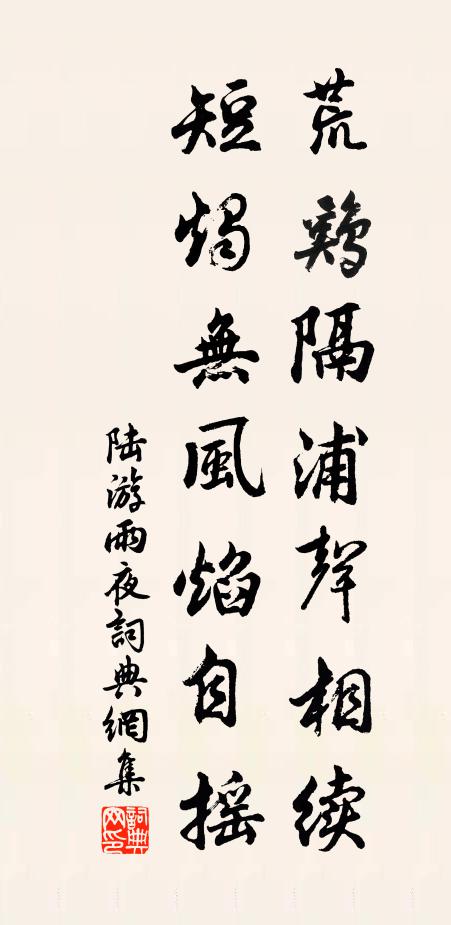 荒鷄隔浦聲相續
短燭無風焰自摇
陆游雨夜詞典網集
詞典网印